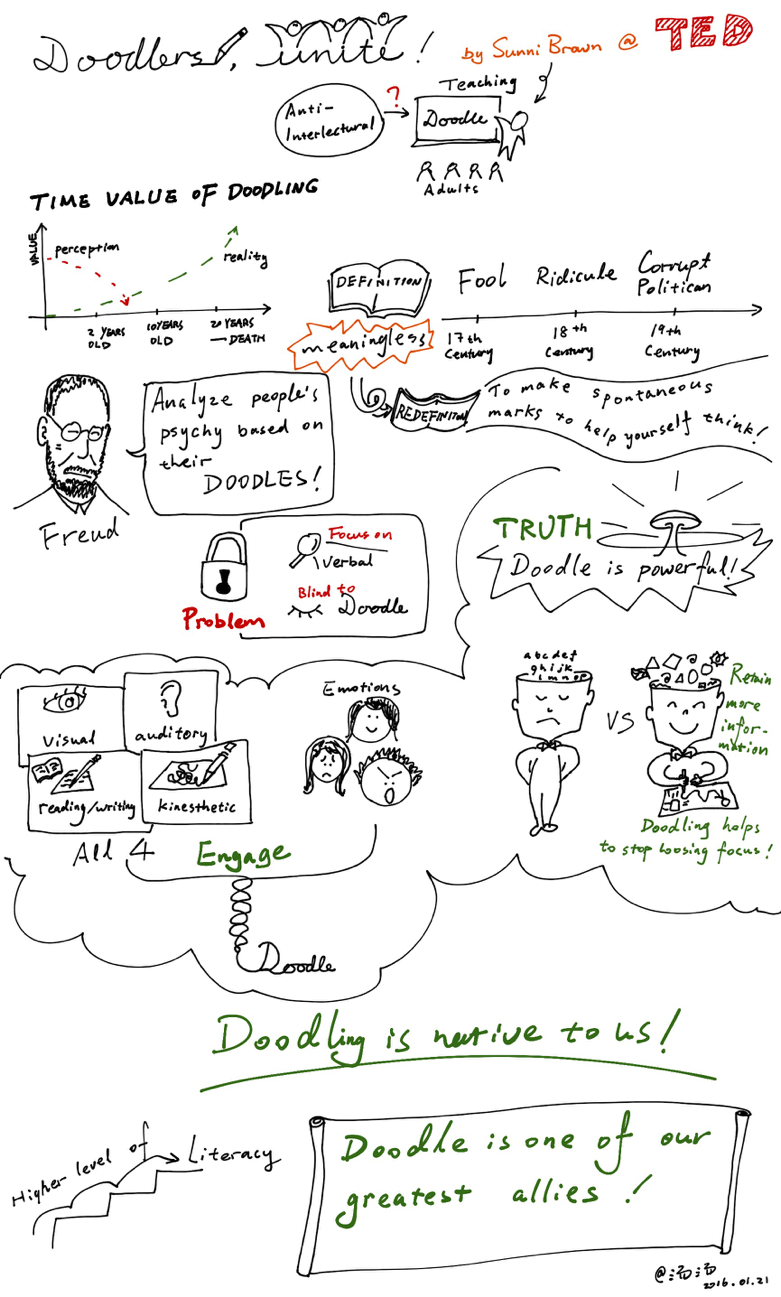 Doodlers, unite!
by Sunni Brown @ TED
Teaching
Anti-
Interlectural
?
Doodle
Adults
TIME VALUE OF DOODLING
VALUE
perception
reality
2 YEARS
OLD
10YEARS
OLD
20 YEARS
— DEATH
DEFINITION
meaningless
Fool
Ridicule
Corrupt
Politican
17th
Century
18th
Century
19th
Century
REDEFINITION
To make spontaneous
marks to help yourself think!
Analyze people's
psychy based on
their
DOODLES!
Freud
Problem
Focus on
Verbal
Blind to
Doodle
TRUTH
Doodle is powerful!
visual
auditory
reading/writing
kinesthetic
All 4
Emotions
Engage
Doodle
abcdef
ghijk
lmnop
VS
Retain
more
infor-
mation
Doodling helps
to stop loosing focus!
Doodling is native to us!
Higher level of Literacy
Doodle is one of our
greatest allies!
2016.01.21